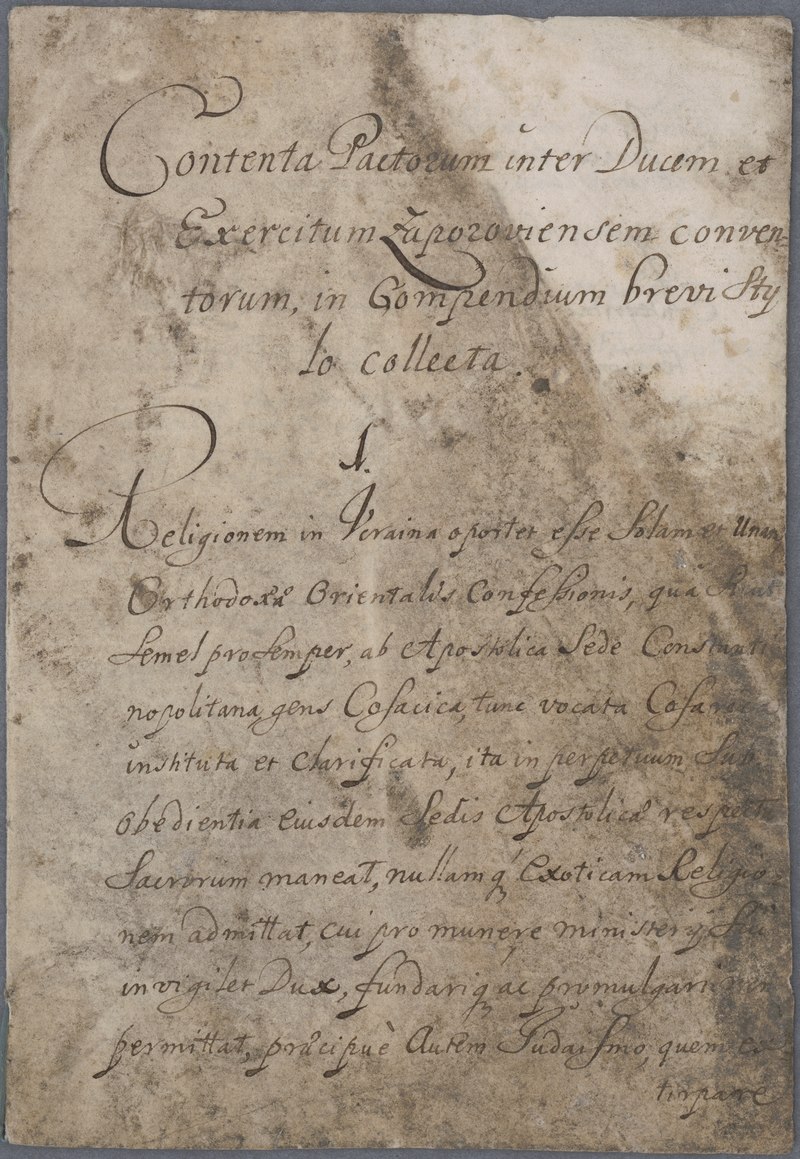 Contenta Pactorum inter Ducem et
Exercitum Zaporoviensem conven-
torum, in Compendium brevi Sty
lo collecta.
1.
Religionem in Vcraina oportet esse Solam et Unam
Orthodoxæ Orientalis Confessionis, quâ
Semel pro Semper, ab Apostolica Sede Constanti
nopolitana, gens Cosacica, tunc vocata
instituta et Clarificata, ita in perpetuum Sub
Obedientia Eiusdem Sedis Apostolicæ
Sacrorum maneat, nullamq' Exoticam Religio-
nem admittat, cui pro munere ministerij Sui
invigilet Dux, fundariq ac promulgari
permittat, præcipuè Autem Judaismo, quem
tirpare